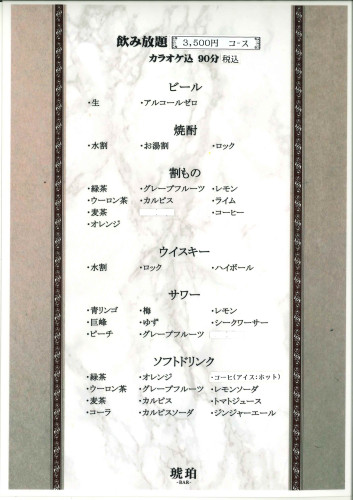 飲み放題 3,500円 コース
カラオケ込 90分 税込
ビール
・生 ・アルコールゼロ
焼酎
・水割 ・お湯割 ・ロック
割もの
・緑茶 ・グレープフルーツ ・レモン
・ウーロン茶 ・カルピス ・ライム
・麦茶 ・コーヒー
・オレンジ
ウイスキー
・水割 ・ロック ・ハイボール
サワー
・青リンゴ ・梅 ・レモン
・巨峰 ・ゆず ・シークワーサー
・ピーチ ・グレープフルーツ
ソフトドリンク
・緑茶 ・オレンジ ・コーヒ(アイス:ホット)
・ウーロン茶 ・グレープフルーツ ・レモンソーダ
・麦茶 ・カルピス ・トマトジュース
・コーラ ・カルピスソーダ ・ジンジャーエール
琥珀
-BAR-